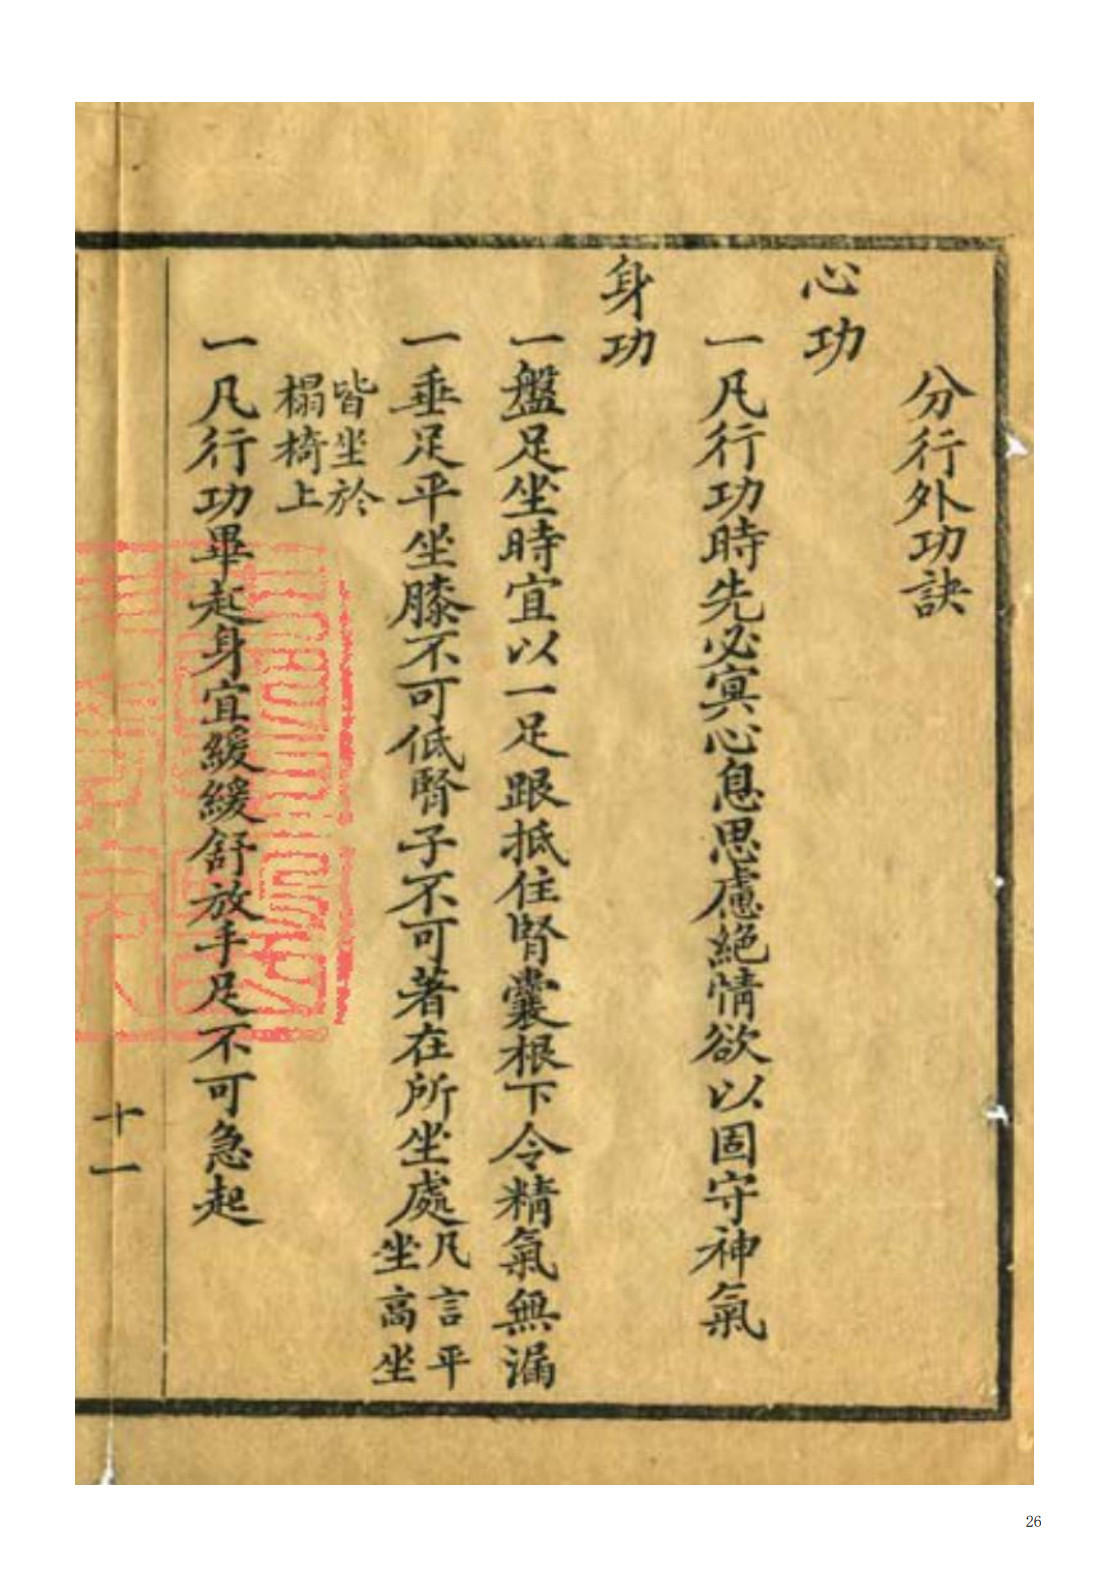 分行外功訣
心功
一凡行功時先必寘心息思慮絕情欲以固守神氣
身功
一盤足坐時宜以一足跟抵住腎囊根下令精氣無漏
一垂足平坐膝不可低腎子不可著在所坐處凡言平
坐高坐
皆坐於
榻椅上
一凡行功畢起身宜緩緩舒放手足不可急起
十一
26